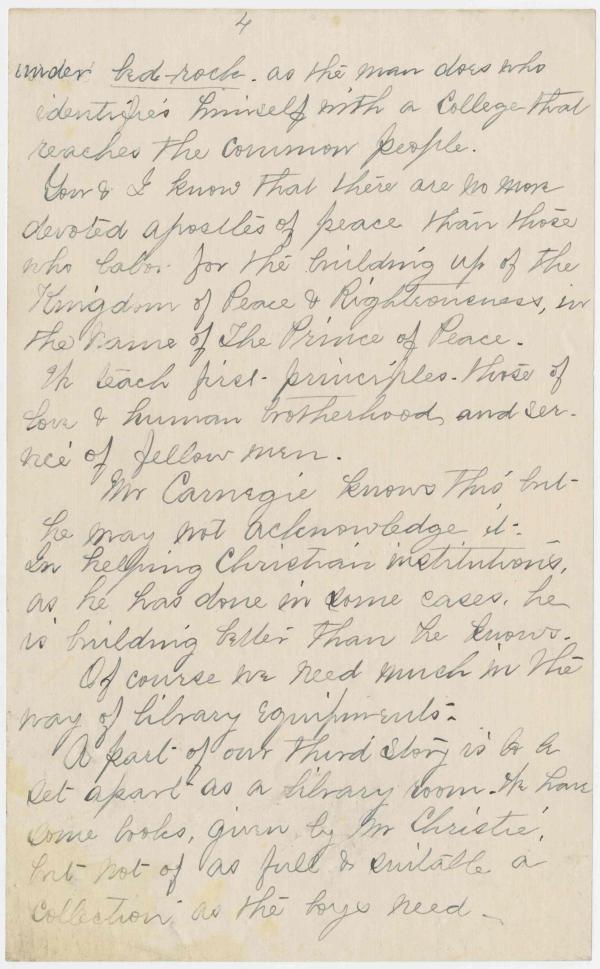 4
under bed-rock. as the man does who
identifies himself with a College that
reaches the common people.
You & I know that there are no more
devoted apostles of peace than those
who labor for the building up of the
Kingdom of Peace & Righteousness, in
the name of The Prince of Peace.
We teach first principles. those of
love & human brotherhood, and ser-
vice of fellow men.
Mr Carnegie knows this but
he may not acknowledge it.
In helping Christian institutions,
as he has done in some cases, he
is building better than he knows.
Of course we need much in the
way of library equipments.
A part of our third story is to be
set apart as a library room. We have
some books, given by Mr Christie,
but not of as full & suitable a
collection as the boys need.